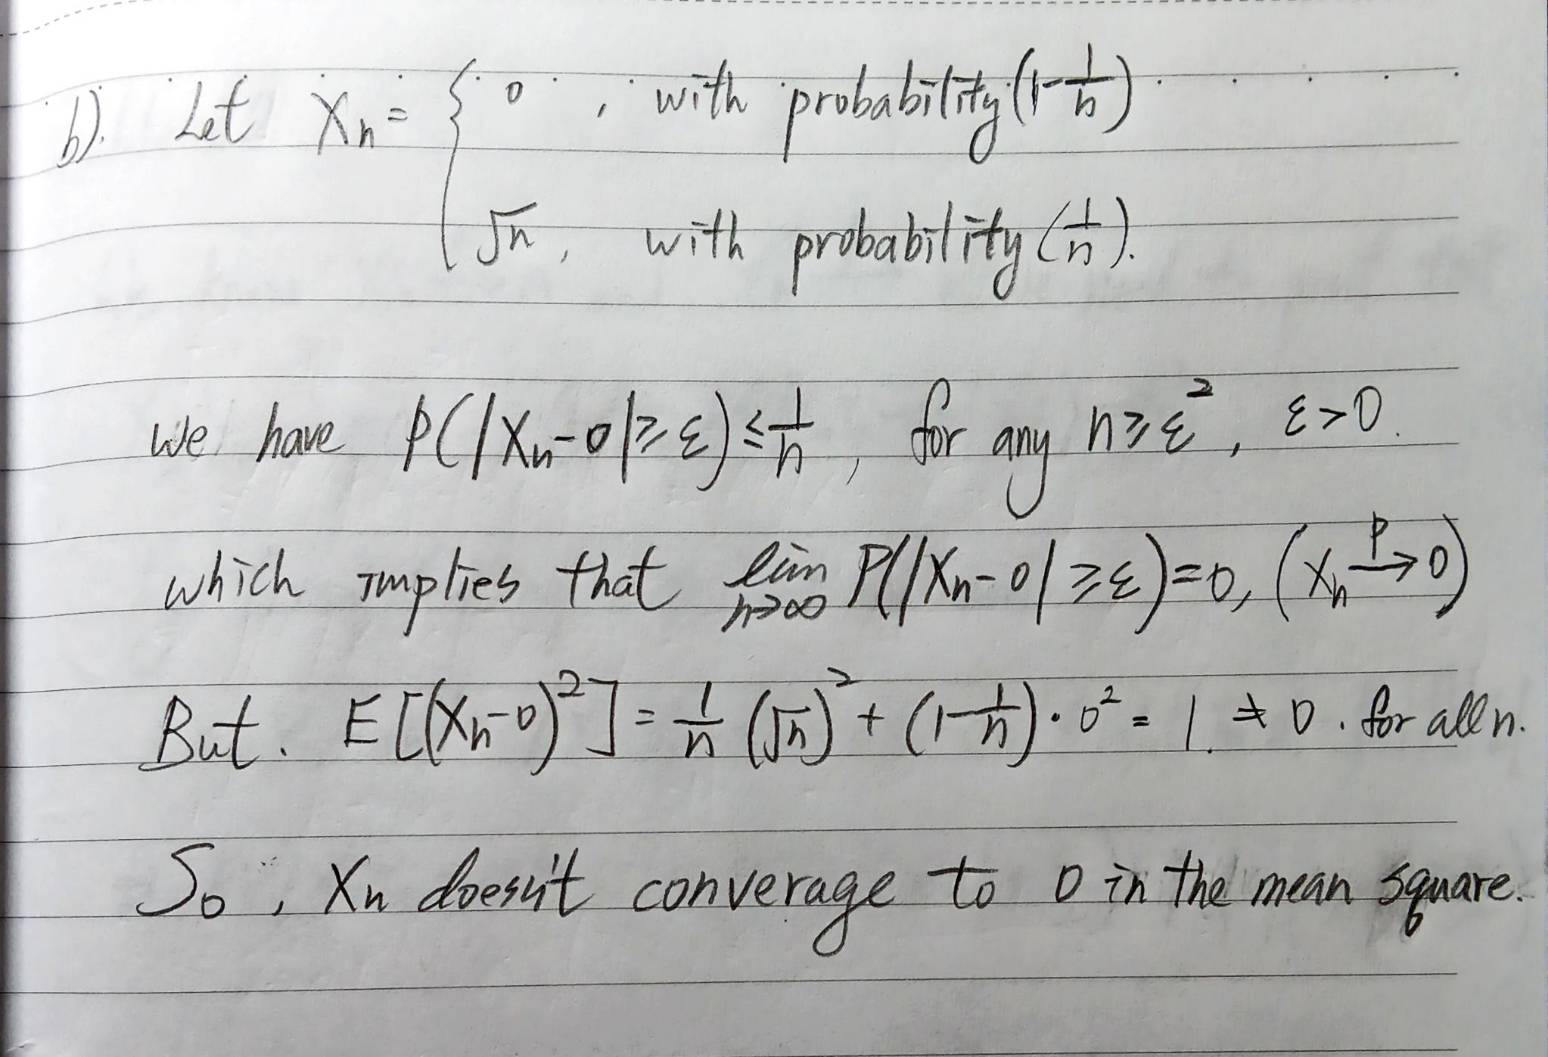 b). Let Xn = { 0 , with probability (1-1/n)
√n , with probability (1/n).
we have P(|Xn-0|≥ε) ≤ 1/n , for any n≥ε², ε>0.
which implies that lim n→∞ P(|Xn-0|≥ε)=0, (Xn →P 0)
But. E[(Xn-0)²] = 1/n (√n)² + (1-1/n)·0² = 1. ≠ 0. for all n.
So , Xn doesn't converage to 0 in the mean square.